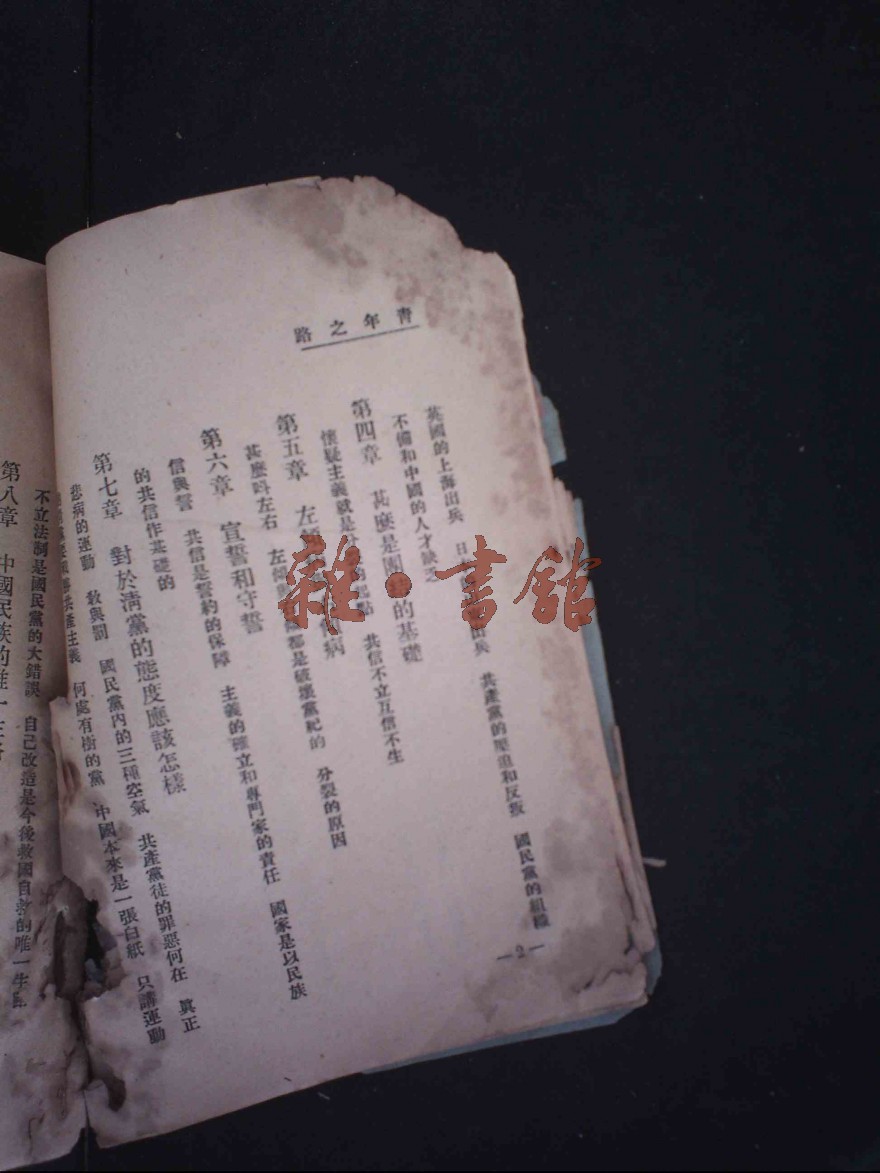 青年之路
英國的上海出兵 日 出兵 共產黨的壓迫和反叛 國民黨的組織
不備和中國的人才缺乏
第四章 甚麼是團結的基礎
懷疑主義就是分 的起點 共信不立互信不生
第五章 左 病
甚麼呌左右 左傾 都是破壞黨紀的 分裂的原因
第六章 宣誓和守誓
信與誓 共信是誓約的保障 主義的確立和專門家的責任 國家是以民族
的共信作基礎的
第七章 對於淸黨的態度應該怎樣
悲病的運動 敎與罰 國民黨內的三種空氣 共產黨徒的罪惡何在 眞正
共產主義 何處有樹的黨 中國本來是一張白紙 只講運動
不立法制是國民黨的大錯誤 自己改造是今後救國自救的唯一生
第八章 中國民族的唯一生
—2—
雜·書館